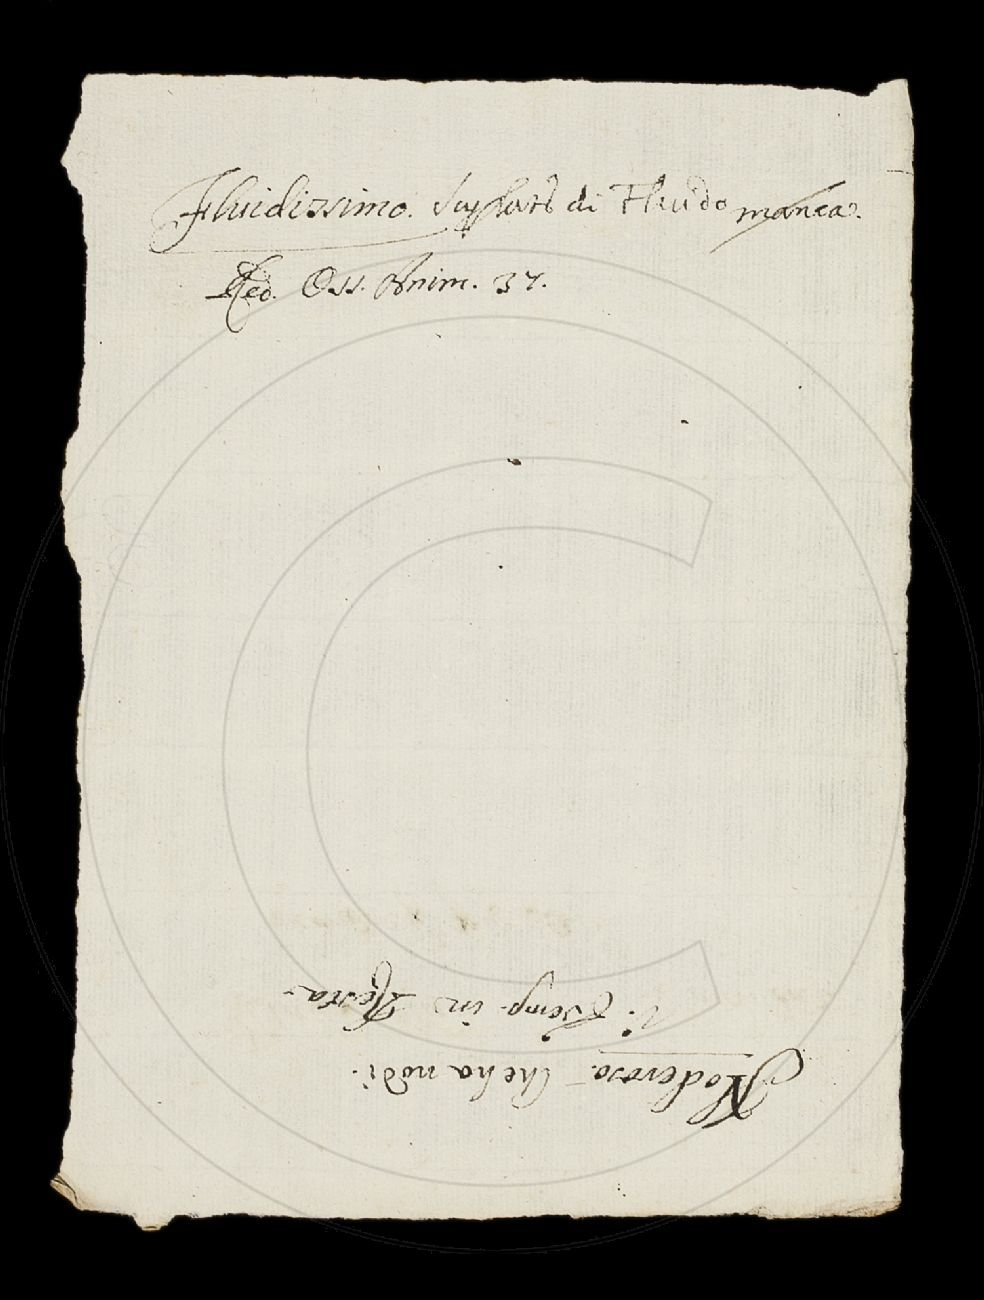 Fluidissimo. Superlat. di Fluido manca.
Red. Oss. Anim. 37.
Noderoso. Che ha nodi.
V. Esemp. in Resta